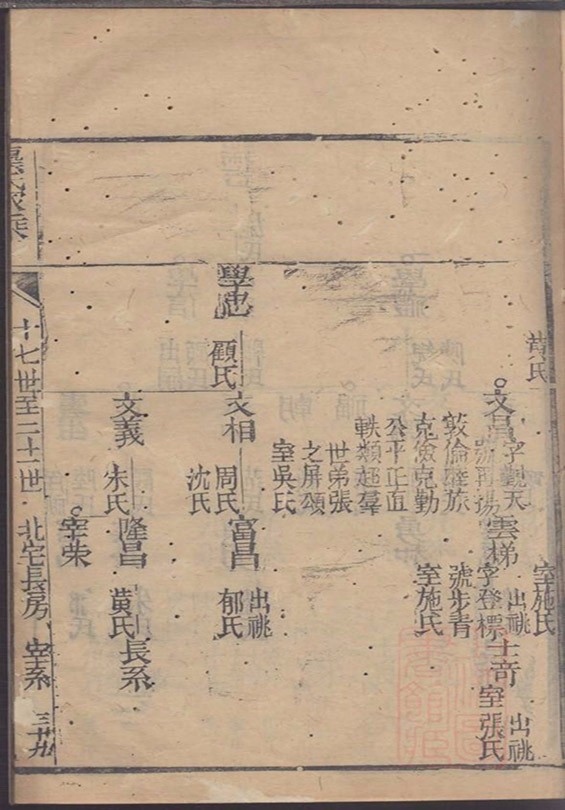 黃氏
文昌
字觀天
號再揚
敦倫睦族
克儉克勤
公平正直
軼類超羣
世弟張
之屏頌
室吳氏
雲梯
出祧
字登標
號步青
室施氏
室施氏
士奇
出祧
室張氏
學忠
顧氏
文相
周氏
沈氏
富昌
出祧
郁氏
文義
朱氏
隆昌
黃氏
長系
宰柴
十七世至二十一世
北宅長房
宰系